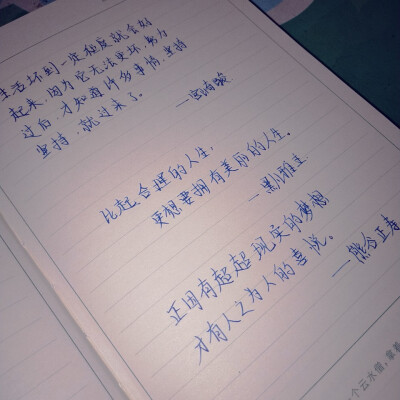 生活坏到一定程度就会好
起来，因为它无法更坏，努力
过后，才知道许多事情，坚持
坚持，就过来了。
——宫崎骏
比起合理的人生，
更想要拥有美丽的人生。
——黑川雅之
正因有超越现实的梦想
才有人之为人的喜悦。
——熊谷正寿
个云水僧，常着